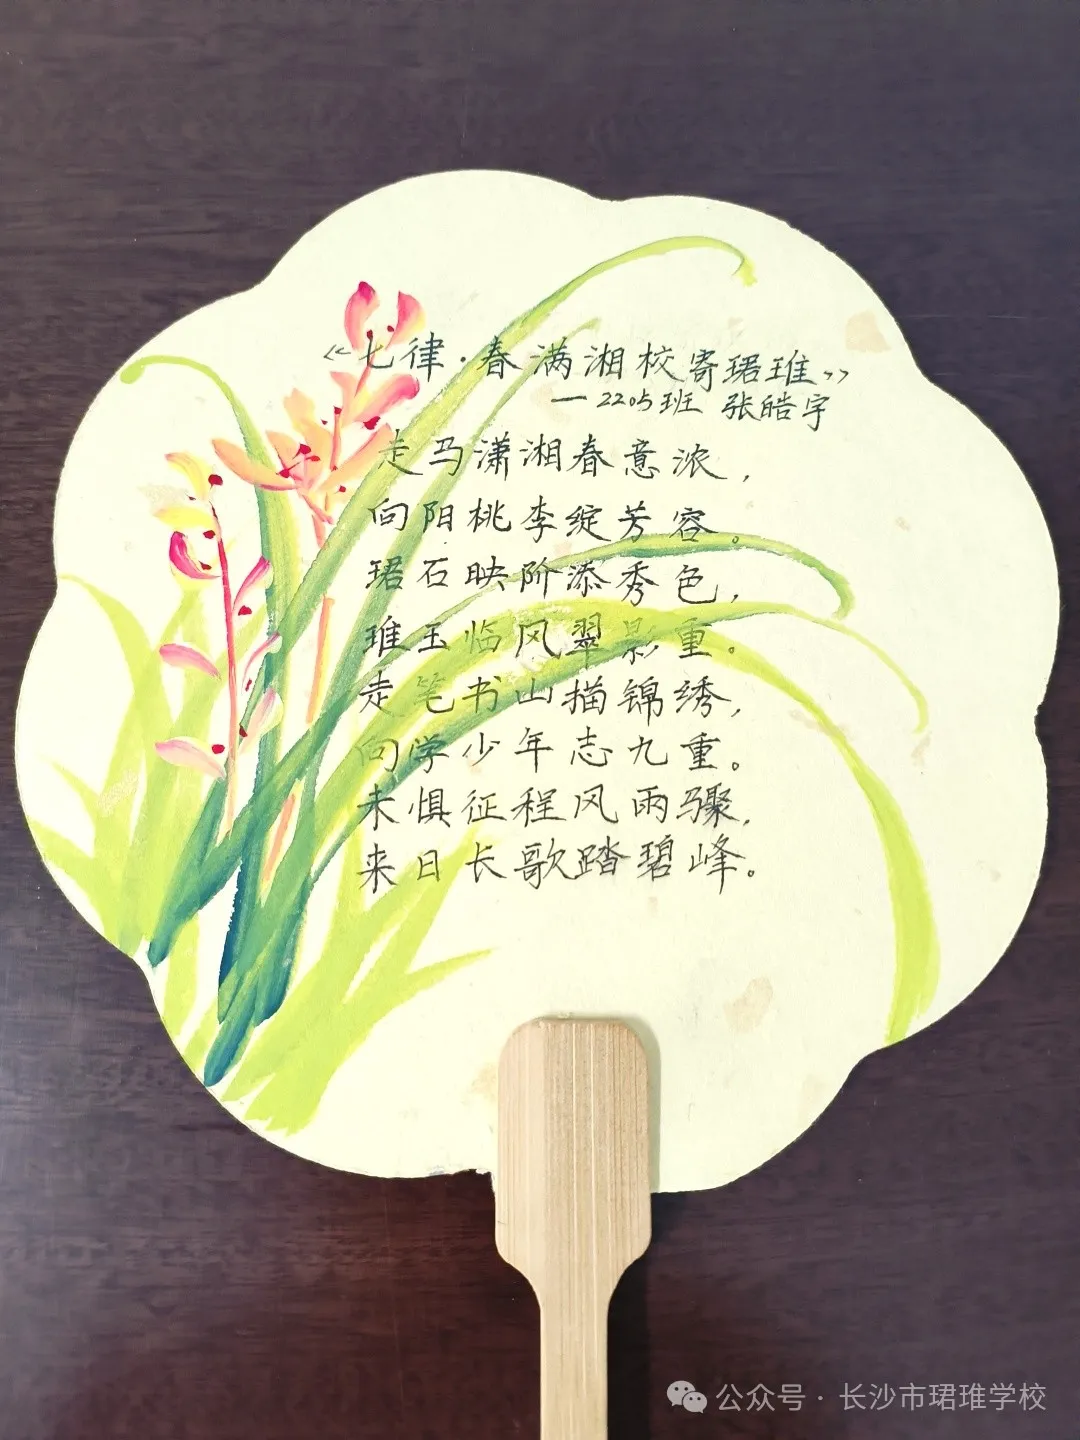 《七律·春满湘校寄珺琟》
—2205班 张皓宇
走马潇湘春意浓，
向阳桃李绽芳容。
珺石映阶添秀色，
琟玉临风翠影重。
走笔书山描锦绣，
向学少年志九重。
未惧征程风雨骤，
来日长歌踏碧峰。
公众号·长沙市珺琟学校